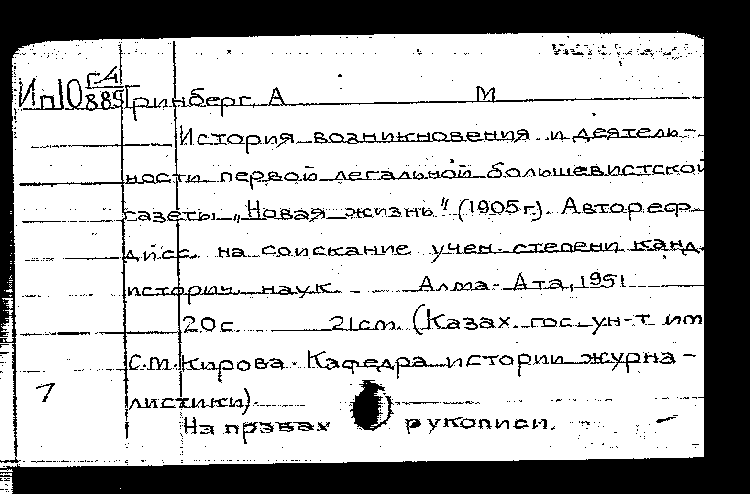 Ип10 Г-4/885 Гринберг, А М
История возникновения и деятель-
ности первой легальной большевистской
газеты „Новая жизнь" (1905г). Автореф.
дисс. на соискание учен. степени канд.
историч. наук. Алма-Ата, 1951
20с 21см. (Казах. гос. ун-т им
С.М.Кирова. Кафедра истории журна-
1
листики).
На правах рукописи.